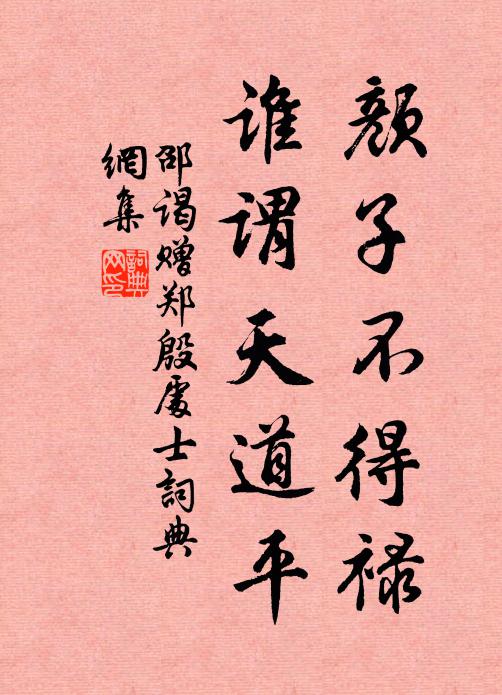 颜子不得禄
谁谓天道平
邵谒赠郑殷處士詞典
網集
詞典
网印